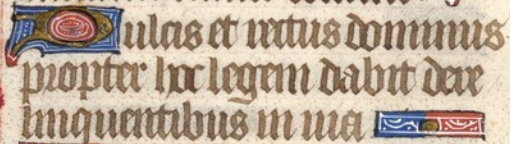 Dulcis et rectus dominus
propter hoc legem dabit dere
linquentibus in uia